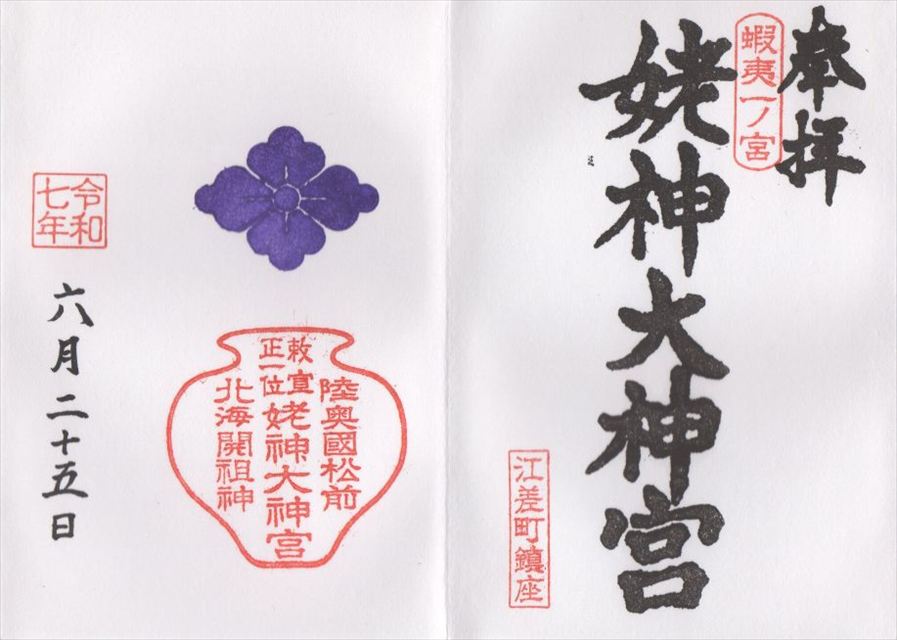 奉拝
蝦夷一ノ宮
姥神大神宮
江差町鎮座
陸奥國松前
敕宣
正一位
姥神大神宮
北海開祖神
令和
七年
六月二十五日